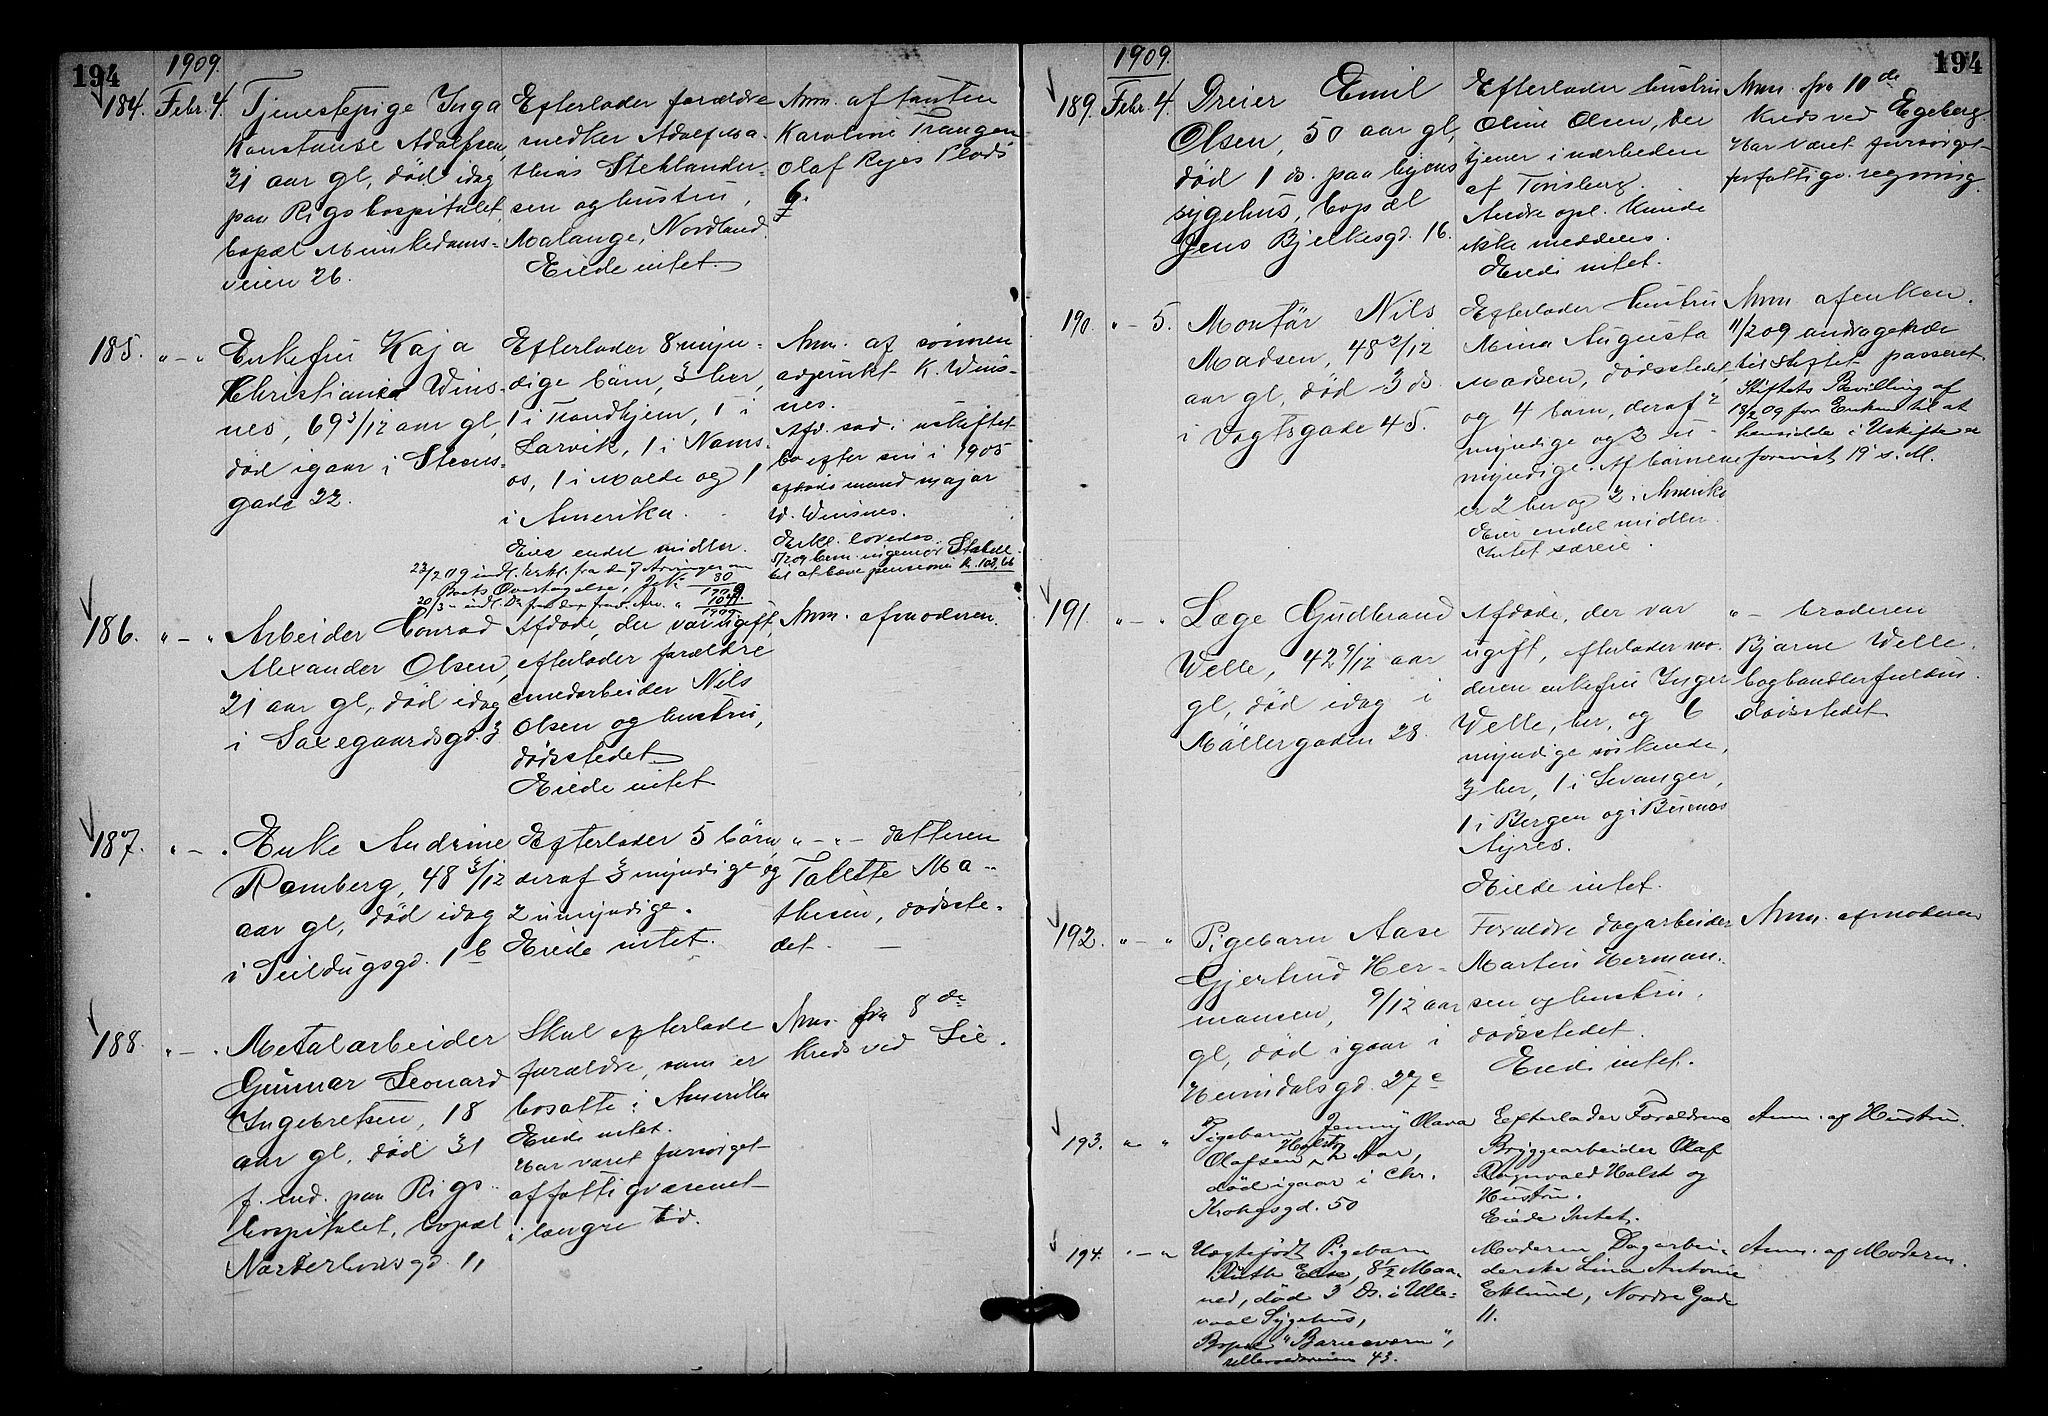 194
1909.
184. Febr. 4. Tjenestepige Inga
Konstanse Adolfsen,
31 aar gl, død idag
paa Rigshospitalet,
bopæl Munkedams-
veien 26.
Efterlader forældre
Malange, Nordland.
Eiede intet.
Anm. af tanten
Karoline Trangen
Olaf Ryes Plads
6.
185. " - " Enkefru Kaja
Christiania Wins-
nes, 69 3/12 aar gl,
død igaar i Stens-
gade 22.
Efterlader 8 myn-
dige børn, 3 her,
1 i Trondhjem, 1 i
Larvik, 1 i Nams-
os, 1 i Molde og 1
i Amerika.
Eier endel midler.
Anm. af sønnen
adjunkt K. Wins-
nes.
Afd. sad i uskiftet
bo efter sin i 1905
afdøde mand major
W. Winsnes.
Erkl. lovedes.
186. " - " Arbeider Conrad
Alexander Olsen,
21 aar gl, død idag
i Saxegaardsgd. 3
Afdøde, der var ugift,
efterlader forældre
smedarbeider Nils
Olsen og hustru,
dødsstedet
Eiede intet
Anm. af moderen.
187. " - " Enke Andrine
Ramberg, 48 3/12
aar gl, død idag
i Seildugsgd. 1 b
Efterlader 5 børn,
deraf 3 myndige og
2 umyndige.
Eiede intet.
" - " - datteren
Talette Ma-
thisen, dødsste-
det. -
188. " - " Metalarbeider
Gunnar Leonard
Ingebretsen, 18
aar gl, død 31
f. md. paa Rigs-
hospitalet, bopæl
Norderhovsgd. 11
Skal efterlade
forældre, som er
bosatte i Amerika
Eiede intet.
Har været forsørget
af fattigvæsenet
i længre tid.
Anm. fra 8de
kreds ved Lie.
194
1909.
189. Febr. 4. Dreier Emil
Olsen, 50 aar gl,
død 1 ds. paa byens
sygehus, bopæl
Jens Bjelkesgd. 16.
Efterlader hustru
Oline Olsen, der
tjener i nærheden
af Tønsberg.
Andre opl. kunde
ikke meddeles.
Eiede intet.
Anm. fra 10de
kreds ved Egeberg.
Har været forsørget
for fattigv. regning.
190. " - 5. Montør Nils
Madsen, 48 2/12
aar gl, død 3 ds
i Vogtsgade 45.
Efterlader hustru
Mina Augusta
Madsen, dødsstedet,
og 4 børn, deraf 2
myndige og 2 u-
myndige. Af børnene
er 2 her og 2 i Amerika
Eier endel midler.
Intet særeie.
Anm af enken.
til Skiftet passeret.
Skiftets Bevilling af
18/2 09 for Enken til at
hensidde i Uskifte er
forevist 19 s. M.
191. " - " Læge Gudbrand
Welle, 42 9/12 aar
gl, død idag i
Møllergaden 28.
Afdøde, der var
ugift, efterlader mo-
deren enkefru Inger
Welle, her, og 6
myndige søskende,
3 her, 1 i Levanger,
1 i Bergen og i Buenos
Ayres.
Eiede intet.
" - broderen
Bjarne Welle,
boghandlerfuldm.
dødsstedet
192. " - " Pigebarn Aase
Gjertrud Her-
mansen, 9/12 aar
gl, død igaar i
Heimdalsgd. 27 c
Forældre dagarbeider
Martin Herman-
sen og hustru,
dødsstedet.
Eiede intet.
Anm. af moderen
193. " " Pigebarn Jenny Olava
Olafsen Holst, 2 Aar,
død igaar i Chr.
Krohgsgd. 50
Efterlader Forældrene
Bryggearbeider Olaf
Ragnvald Holst og
Hustru.
Eiede Intet.
Anm. af Hustru.
194. " - " Uægtefødt Pigebarn
Ruth Else, 8 1/2 Maa-
ned, død 3 ds. i Ulle-
vaal Sygehus,
Bopæl "Barneværn",
Ullevoldsveien 43.
Moderen Dagarbei-
derske Lina Antonie
Eklund, Nordre Gade
11.
Anm. af Moderen.